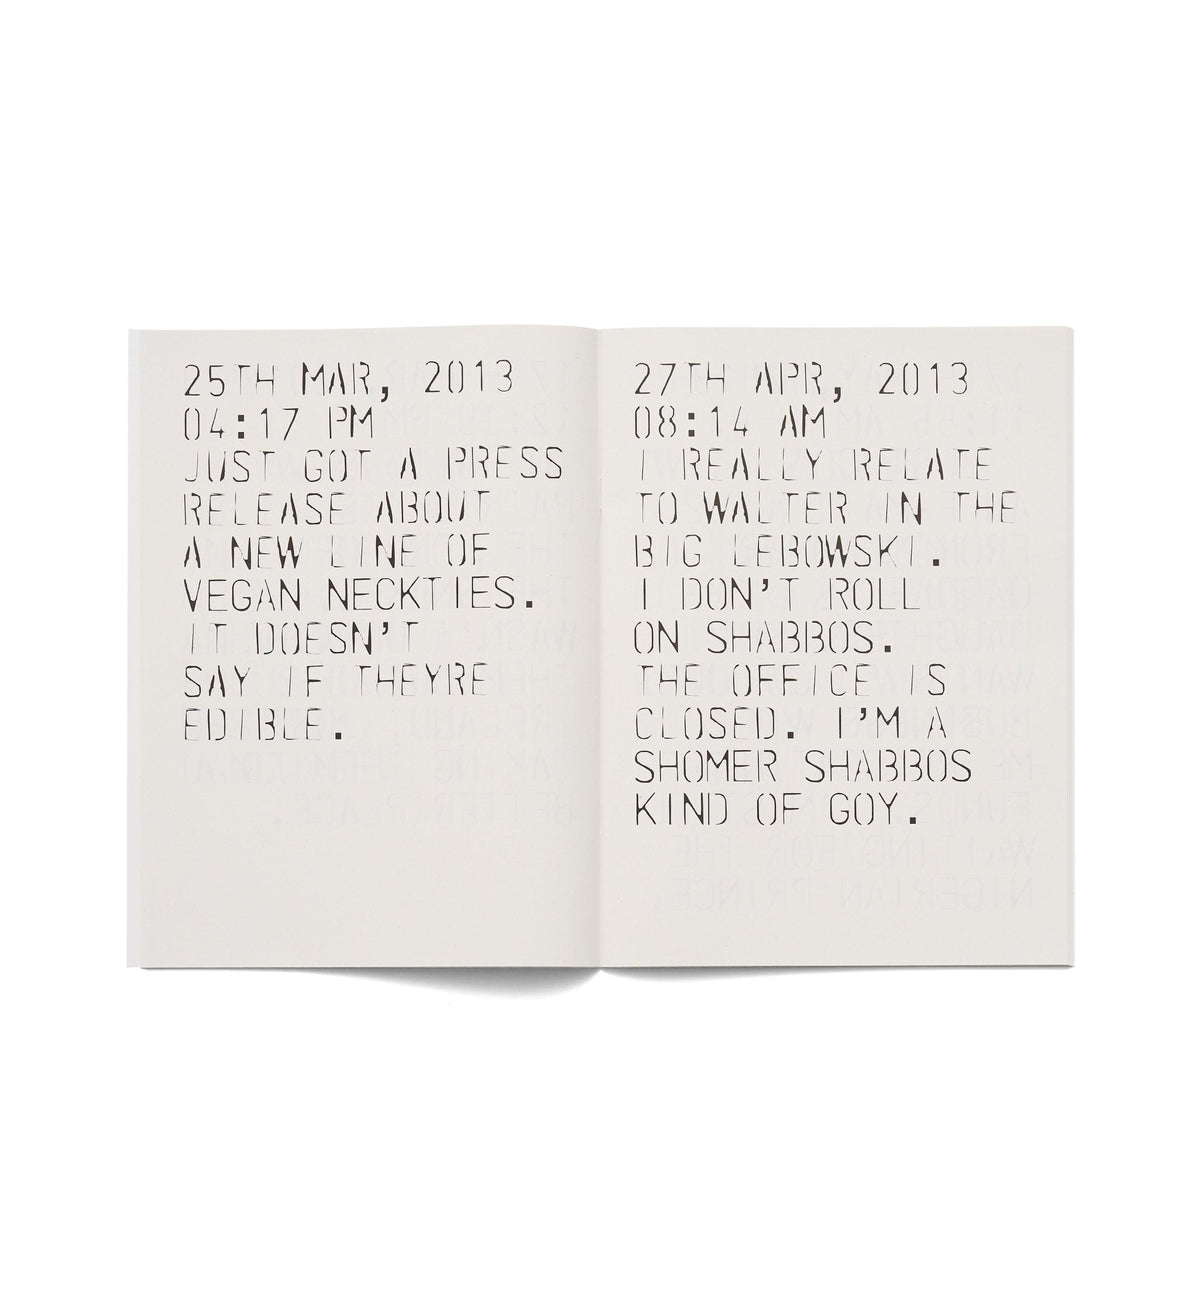 25TH MAR, 2013
04:17 PM
JUST GOT A PRESS
RELEASE ABOUT
A NEW LINE OF
VEGAN NECKTIES.
IT DOESN'T
SAY IF THEYRE
EDIBLE.
27TH APR, 2013
08:14 AM
I REALLY RELATE
TO WALTER IN THE
BIG LEBOWSKI.
I DON'T ROLL
ON SHABBOS.
THE OFFICE IS
CLOSED. I'M A
SHOMER SHABBOS
KIND OF GOY.